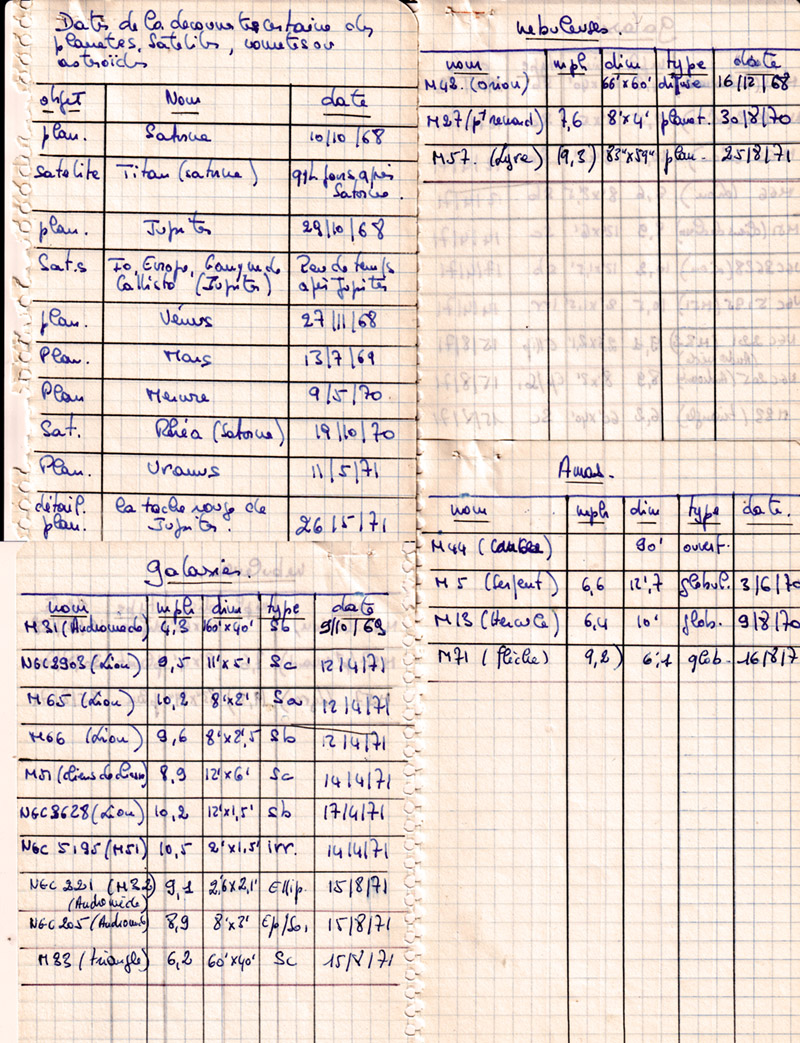 Dates de la decouverte certaine des
planetes, Satelites, cometes ou
asteroïdes
objet Nom date
plan. Saturne 10/10/68
satelite Titan (saturne) après
Saturne.
plan. Jupiter 29/10/68
Sat.s Io, Europe, Ganymede peu de temps
Callisto (Jupiter) après Jupiter
plan. Vénus 27/11/68
Plan. Mars 13/7/69
Plan Mercure 9/5/70
Sat. Rhéa (Saturne) 19/10/70
Plan. Uranus 11/5/71
détail. la tache rouge de
plan. Jupiter. 26/5/71
galaxies.
nom mph dim type date
M31 (Andromede) 4,3 160'x40' Sb 9/10/69
NGC2903 (Lion) 9,5 11'x5' Sc 12/4/71
M65 (Lion) 10,2 8'x2' Sa 12/4/71
M66 (Lion) 9,6 8'x2',5 Sb 12/4/71
M51 (chiens de chasse) 8,9 12'x6' Sc 14/4/71
NGC3628 (Lion) 10,2 12'x1,5' Sb 17/4/71
NGC 5195 (M51) 10,5 2'x1,5' irr. 14/4/71
NGC 221 (M32) 9,1 2,6'x2,1' Ellip. 15/8/71
(Andromède)
NGC205 (Andromède) 8,9 8'x3' Ep/So, 15/8/71
M33 (triangle) 6,2 60'x40' Sc 15/8/71
nebuleuses.
nom mph dim type date
M42. (Orion) 66'x60' difuse 16/12/68
M27 (pt renard) 7,6 8'x4' planet. 30/8/70
M57. (Lyre) (9,3) 83"x59" plan. 25/8/71
Amas.
nom mph dim type date.
M44 (Cancer) 90' ouvert.
M5 (Serpent) 6,6 12',7 globul. 3/6/70
M13 (Hercule) 6,4 10' glob. 9/8/70
M71 (flèche) 9,2) 6',1 glob. 16/8/7